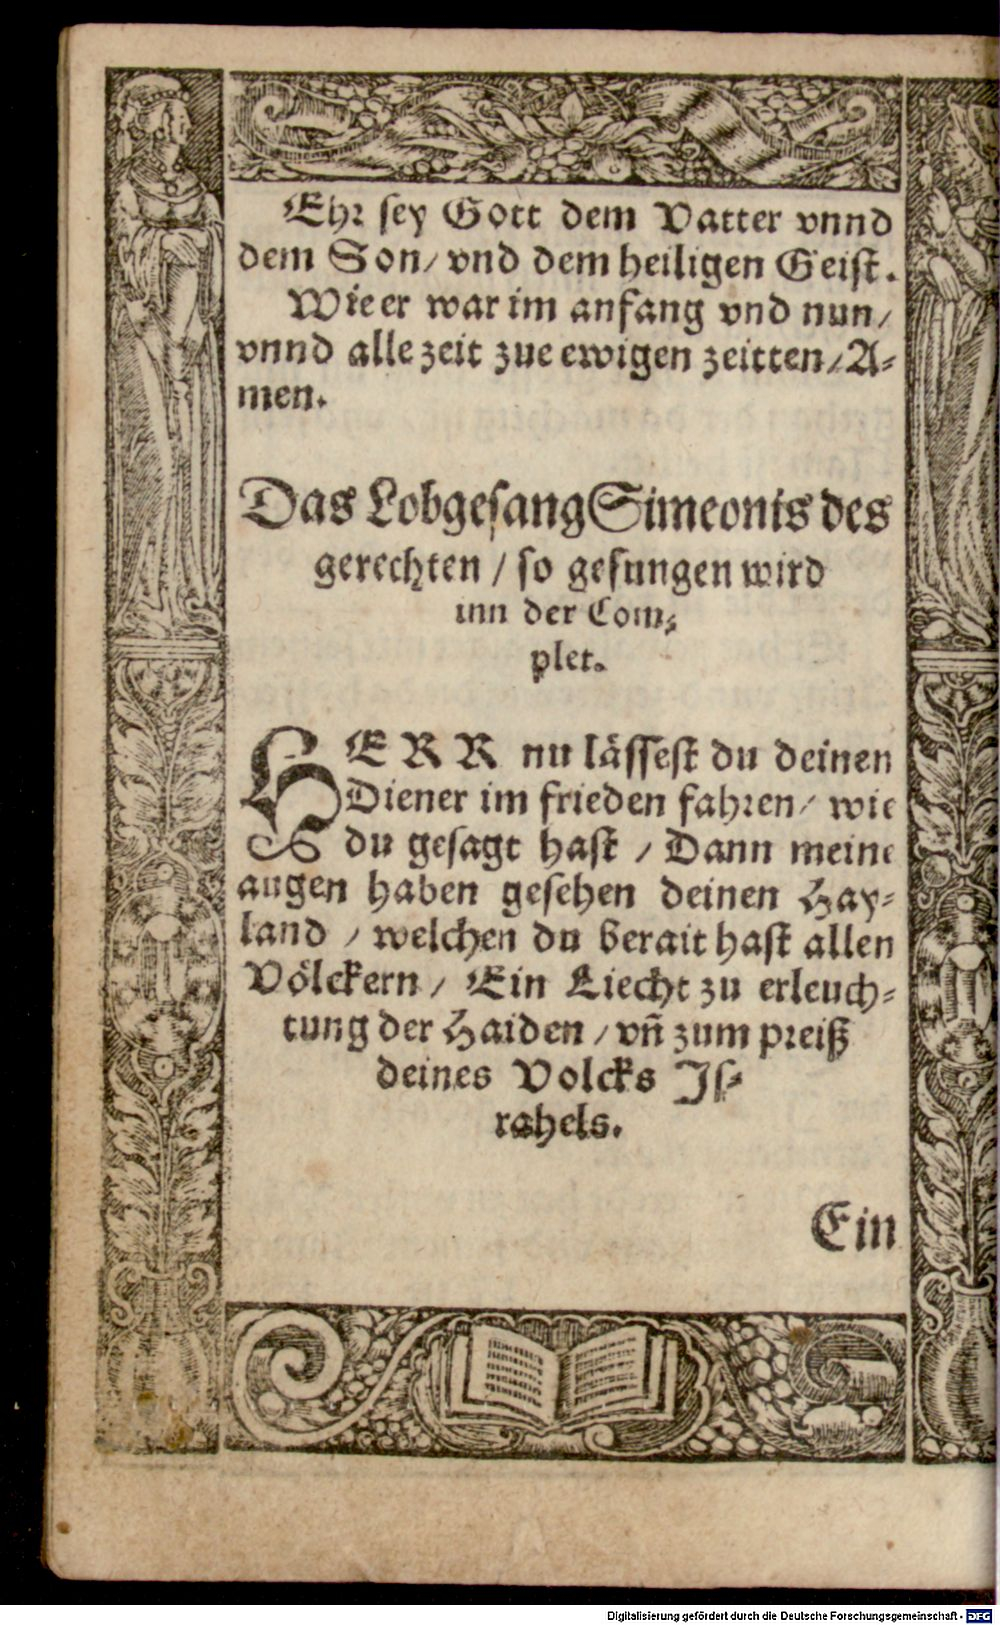 Ehr sey Gott dem Vatter vnnd
dem Son/ vnd dem heiligen Geist.
Wie er war im anfang vnd nun/
vnnd alle zeit zue ewigen zeitten/ A-
men.
Das Lobgesang Simeonis des
gerechten / so gesungen wird
inn der Com-
plet.
HERR nu lässest du deinen
Diener im frieden fahren/ wie
du gesagt hast / Dann meine
augen haben gesehen deinen Hay-
land / welchen du berait hast allen
Völckern/ Ein Liecht zu erleuch-
tung der Haiden / vñ zum preiß
deines Volcks Is-
rahels.
Ein
Digitalisierung gefördert durch die Deutsche Forschungsgemeinschaft - DFG